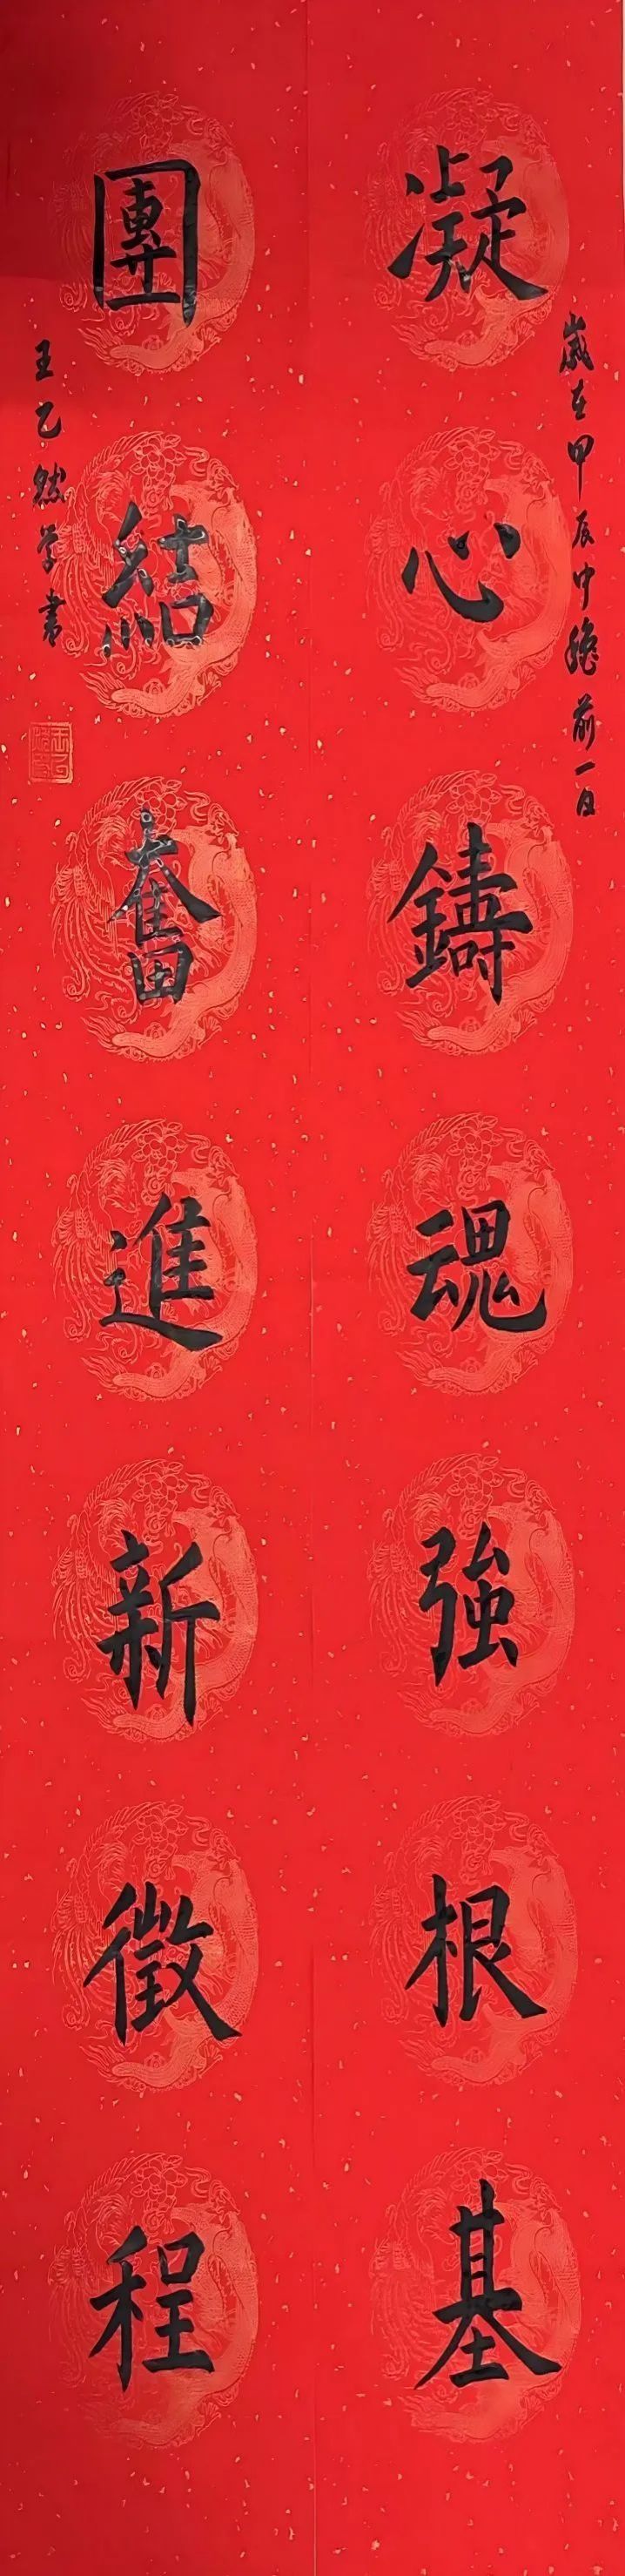 歲在甲辰中穐前一日
凝心鑄魂強根基
團結奮進新徵程
王乙然学書